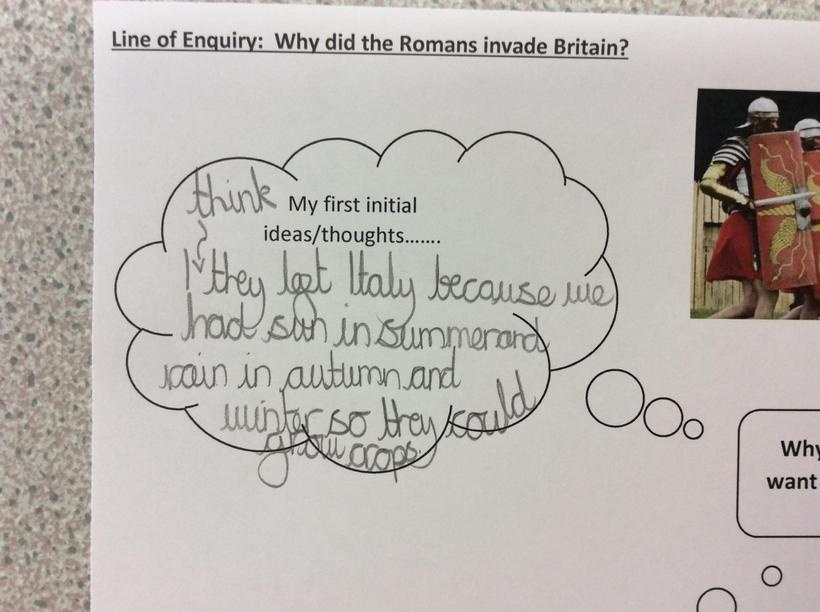 Line of Enquiry: Why did the Romans invade Britain?
think
My first initial
ideas/thoughts.......
I they left Italy because we
had sun in summer and
rain in autumn and
winter so they could
grow crops
Why
want